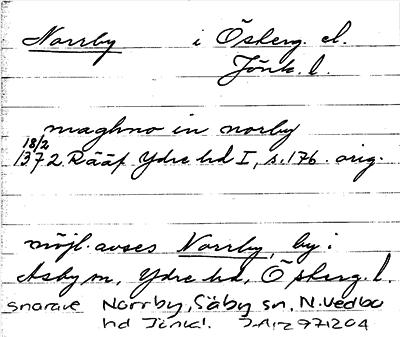 Norrby i Österg. el.
Jönk. l.
maghno in norby
18/2
1372. Rääf Ydre hd I, s. 176. orig.
möjl. avses Norrby, by i
Asby sn, Ydre hd, Österg. l.
snarare Norrby, Säby sn, N. Vedbo
hd Jönk l.